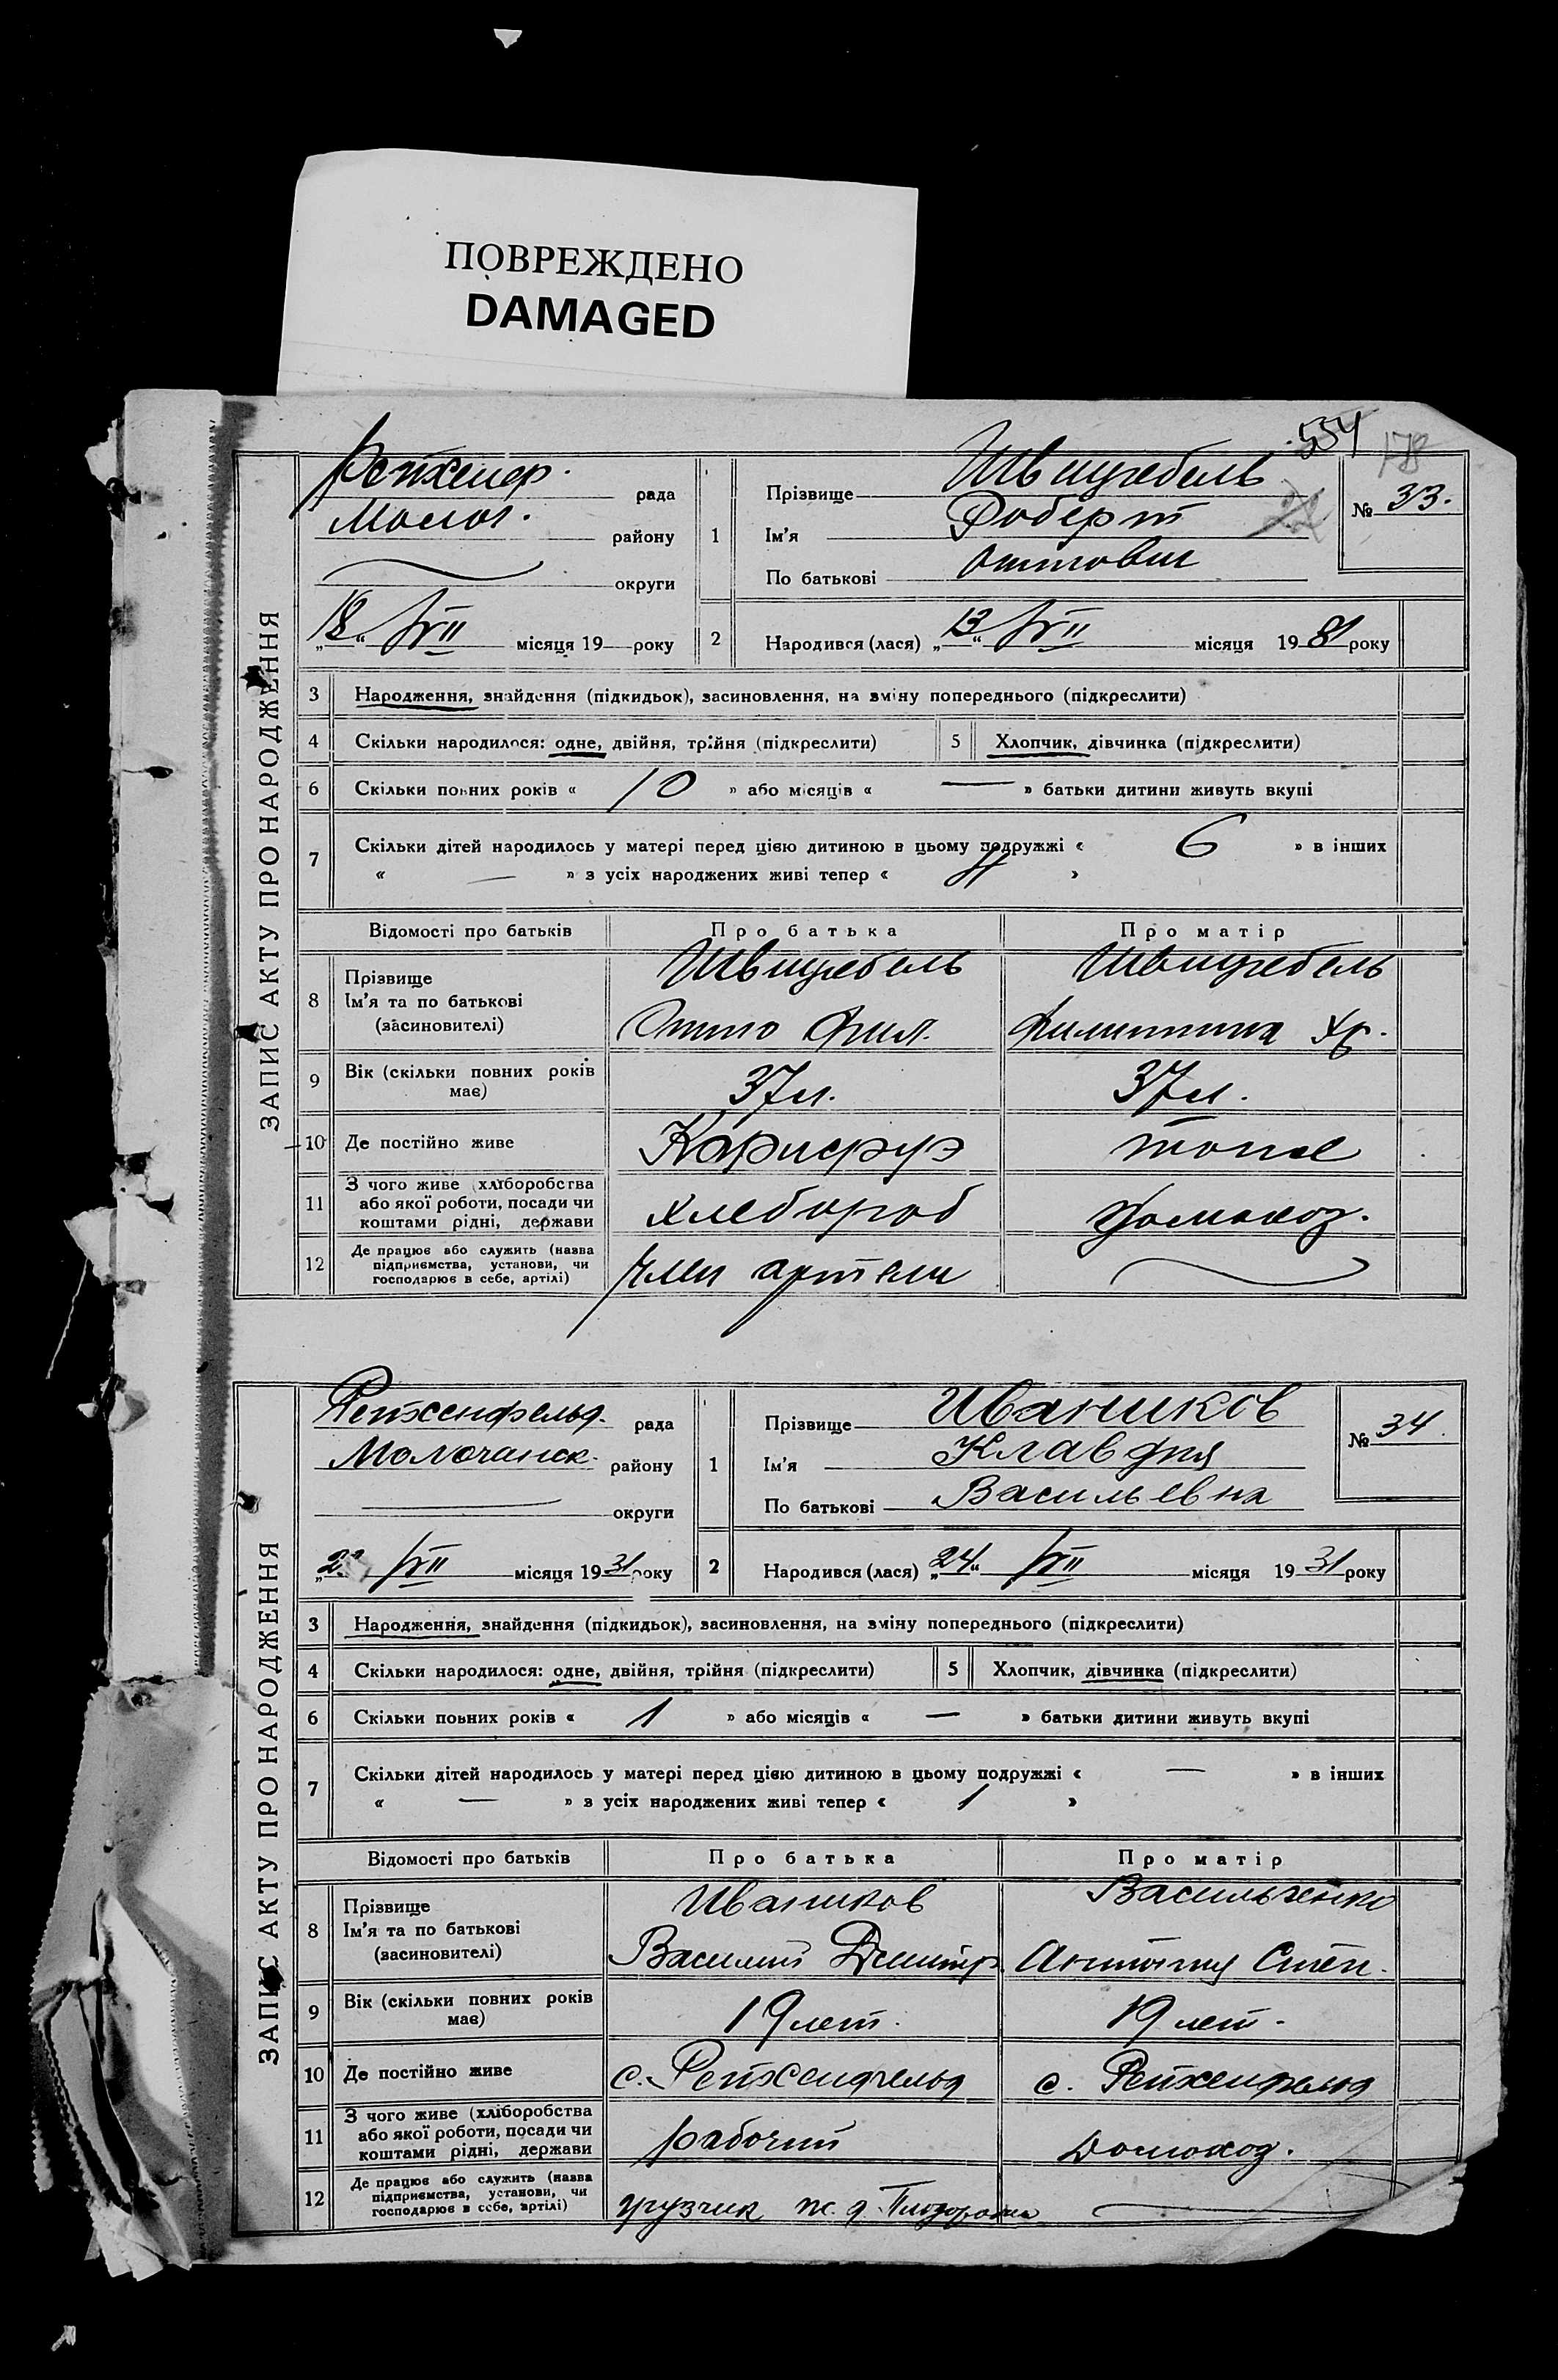 ПОВРЕЖДЕНО
DAMAGED
554
178
ЗАПИС АКТУ ПРО НАРОДЖЕННЯ
Рейхенф. рада
Молоч. району
округи
„18“ VII місяця 19 року
1
Прізвище Швицгебель
Ім'я Роберт
По батькові Оттович
№ 33.
2 Народився (лася) „13“ VII місяця 1931 року
3 Народження, знайдення (підкидьок), засиновлення, на зміну попереднього (підкреслити)
4 Скільки народилося: одне, двійня, трійня (підкреслити)
5 Хлопчик, дівчинка (підкреслити)
6 Скільки повних років « 10 » або місяців « — » батьки дитини живуть вкупі
7 Скільки дітей народилось у матері перед цією дитиною в цьому подружжі « 6 » в інших
« — » з усіх народжених живі тепер « »
Відомості про батьків Про батька Про матір
8 Прізвище Швицгебель Швицгебель
Ім'я та по батькові
(засиновителі) Отто Фил. Филиппина Хр.
9 Вік (скільки повних років має) 37 л. 37 л.
10 Де постійно живе Карлсруэ тоже
11 З чого живе (хліборобства
або якої роботи, посади чи
коштами рідні, держави хлебороб домохоз.
12 Де працює або служить (назва
підприємства, установи, чи
господарює в себе, артілі) Член артели
ЗАПИС АКТУ ПРО НАРОДЖЕННЯ
Рейхенфельд. рада
Молочанск. району
округи
VII місяця 1931 року
1
Прізвище Иваников
Ім'я Клавдия
По батькові Васильевна
№ 34.
2 Народився (лася) „24“ VII місяця 1931 року
3 Народження, знайдення (підкидьок), засиновлення, на зміну попереднього (підкреслити)
4 Скільки народилося: одне, двійня, трійня (підкреслити)
5 Хлопчик, дівчинка (підкреслити)
6 Скільки повних років « 1 » або місяців « — » батьки дитини живуть вкупі
7 Скільки дітей народилось у матері перед цією дитиною в цьому подружжі « — » в інших
« — » з усіх народжених живі тепер « 1 »
Відомості про батьків Про батька Про матір
8 Прізвище Иваников Васильченко
Ім'я та по батькові
(засиновителі) Василий Дмитр. Антонина Степ.
9 Вік (скільки повних років має) 19 лет. 19 лет.
10 Де постійно живе с. Рейхенфельд с. Рейхенфельд
11 З чого живе (хліборобства
або якої роботи, посади чи
коштами рідні, держави рабочий домохоз.
12 Де працює або служить (назва
підприємства, установи, чи
господарює в себе, артілі) грузчик ж. д.